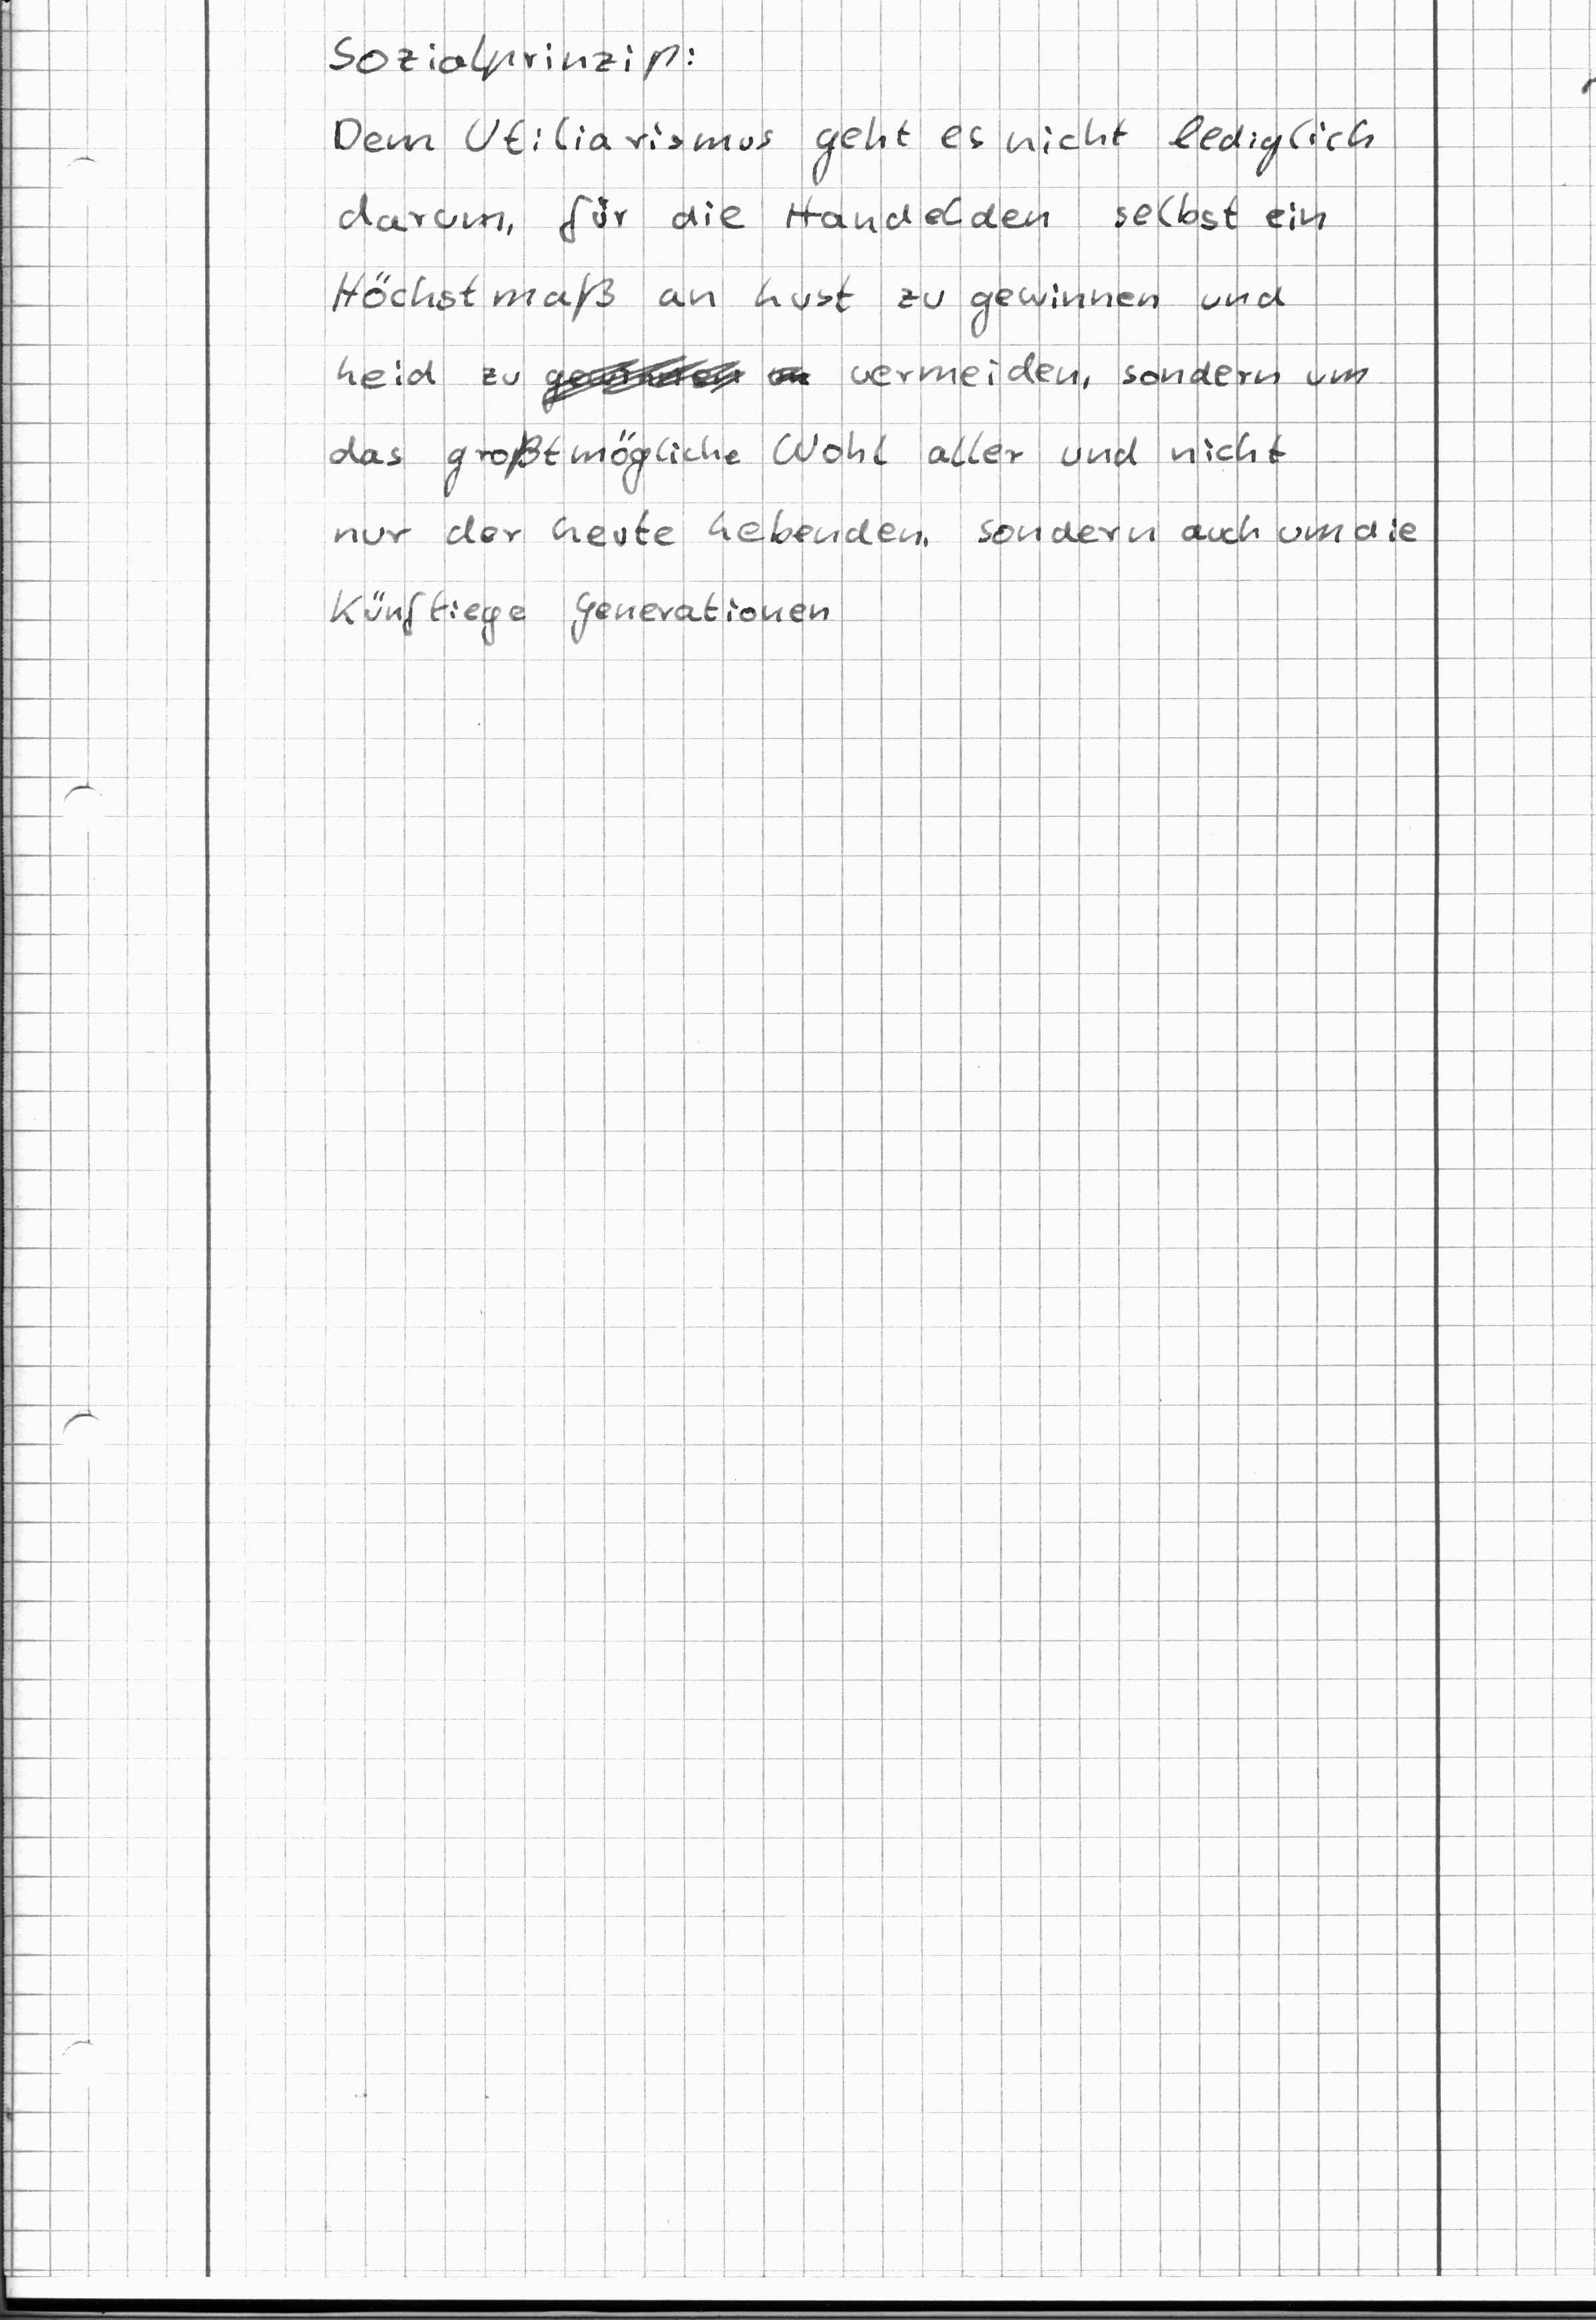 Sozialprinzip:
Dem Utiliarismus geht es nicht lediglich
darum, für die Handelden selbst ein
Höchstmaß an Lust zu gewinnen und
Leid zu vermeiden, sondern um
das großtmögliche Wohl aller und nicht
nur der heute Lebenden, sondern auch um die
Künftiege Generationen